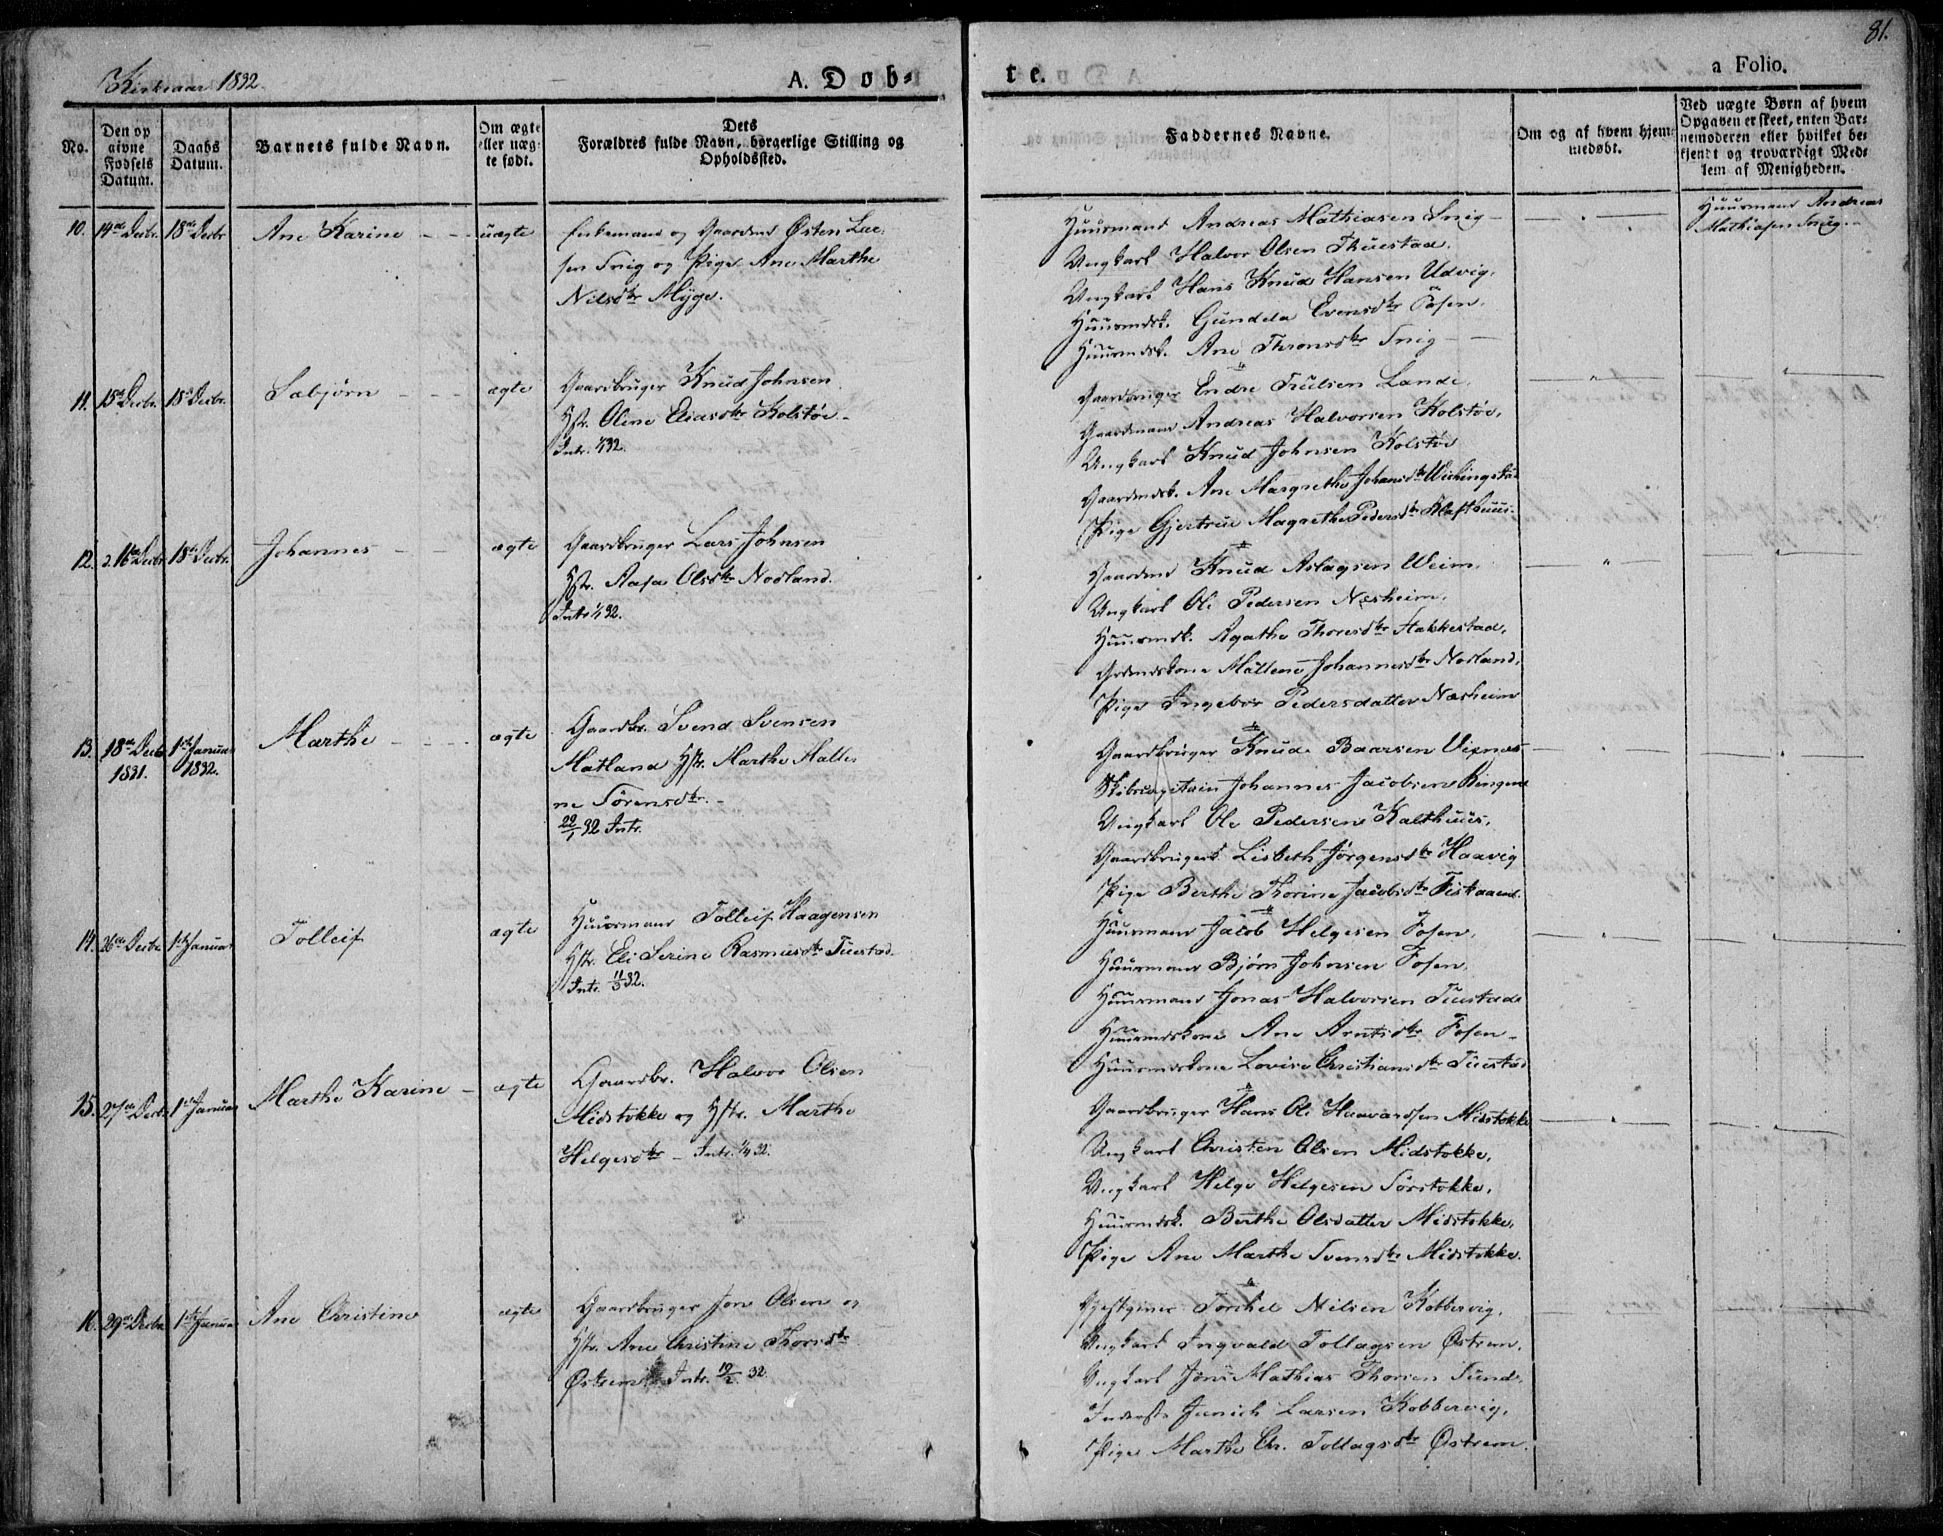 81.
Kirkeaar 1832.
A. Døb-
te.
a Folio.
No.
Den op
givne
Fødsels
Datum.
Daabs
Datum.
Barnets fulde Navn.
Om ægte
eller uæg-
te født.
Dets
Forældres fulde Navn, borgerlige Stilling og
Opholdssted.
Faddernes Navne.
Om og af hvem hjem-
medøbt.
Ved uægte Børn af hvem
Opgaven er skeet, enten Bar-
nemoderen eller hvilket be-
kjendt og troværdigt Med-
lem af Menigheden.
10. 14de Decbr. 18de Decbr Ane Karine - - uægte
Enkemand og Gaardmd Østen Lar-
sen Snig og Pige Ane Marthe
Nilsdtr Myge.
Huusmand Andreas Mathiasen Snig -
Ungkarl Halvor Olsen Thuestad.
Ungkarl Hans Knud Hansen Udvig.
Huusmdsk. Gundela Evensdtr Fosen.
Huusmdsk. Ane Thronsdtr Snig -
Huusmand Andreas
Mathiasen Snig. -
11. 15de Decbr. 18de Decbr. Sæbjørn - - ægte
Gaardbruger Knud Johnsen
Hstr. Olene Eliasdtr Kolstøe -
Intr. 32.
Gaardbruger Endre Trulsen Lande.
Gaardmand Andreas Halvorsen Kolstøe.
Ungkarl Knud Johnsen Kolstøe
Gaardmdsk. Ane Margrethe Johansdtr Wichingstad
Pige Gjertrue Magrethe Pedersdtr Klafthuus.
12. 16de Decbr 18de Decbr. Johannes - - ægte
Gaardbruger Lars Johnsen
Hstr. Aasa Olsdtr Norland.
Intr 32.
Gaardmd Knud Aslagsen Weim.
Ungkarl Ole Pedersen Næsheim.
Huusmdsk. Agathe Thoresdtr Stakkestad.
Grdmdskone Mallene Johannesdtr Norland.
Pige Ingebor Pedersdatter Næsheim
13. 18de Decbr 1831. 1ste Januar 1832. Marthe - - ægte
Gaardbr. Svend Svensen
Matland Hstr. Marthe Malle-
ne Sørensdtr. -
22/1 32 Intr.
Gaardbruger Knud Baarsen Visnæs
Skibscapitain Johannes Jacobsen Ringen
Ungkarl Ole Pedersen Kalthuus.
Gaardbrugersk Lisbeth Jørgensdtr Haavig
Pige Berthe Thorine Jacobsdtr Fiskaaen.
14. 26de Decbr 1ste Januar Tolleif ægte
Huusmand Tolleif Haagensen
Hstr. Eli Serine Rasmusdtr Tuestad.
Intr. 11/3 32.
Huusmand Jacob Helgesen Fosen.
Huusmand Bjørn Johnsen Fosen.
Huusmand Jonas Halvorsen Tuestad
Huusmdskone Ane Arntsdtr Fosen -
Huusmdskone Lovise Christiansdtr Tuestad
15. 27de Decbr 1ste Januar Marthe Karine - ægte
Gaardbr. Halvor Olsen
Midstokke og Hstr. Marthe
Helgesdtr - Intr. 32.
Gaardbruger Hans Ole Haavardsen Midstokke
Ungkarl Christen Olsen Midstokke.
Ungkarl Helge Helgesen Sørstokke.
Huusmdsk. Berthe Olsdatter Midstokke.
Pige Ane Marthe Svensdtr Midstokke.
16. 29de Decbr 1ste Januar Ane Christine ægte
Gaardbruger Jon Olsen og
Hstr. Ane Christine Thorsdtr
Østrem Intr. 19/2 32.
Gjestgiver Torchel Nilsen Kobbervig.
Ungkarl Ingvald Tollagsen Østrem.
Ungkarl Jens Mathias Thorsen Sund.
Inderste Junich Larsen Kobbervig.
Pige Marthe Chr. Tollagsdtr Østrem.